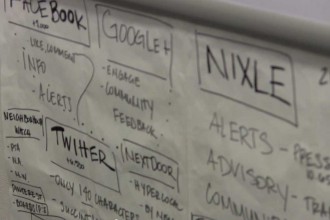 FACEBOOK
LIKE COMMENT
INFO
ALERTS
GOOGLE+
ENGAGE
COMMUNITY
FEEDBACK
NIXLE
ALERTS - PRESS
ADVISORY - TRA
COMMUNI
NEIGHBORHOOD
WATCH
TWITTER
ONLY 140 CHARACTERS
NEXTDOOR
HYPERLOCAL
PINTEREST